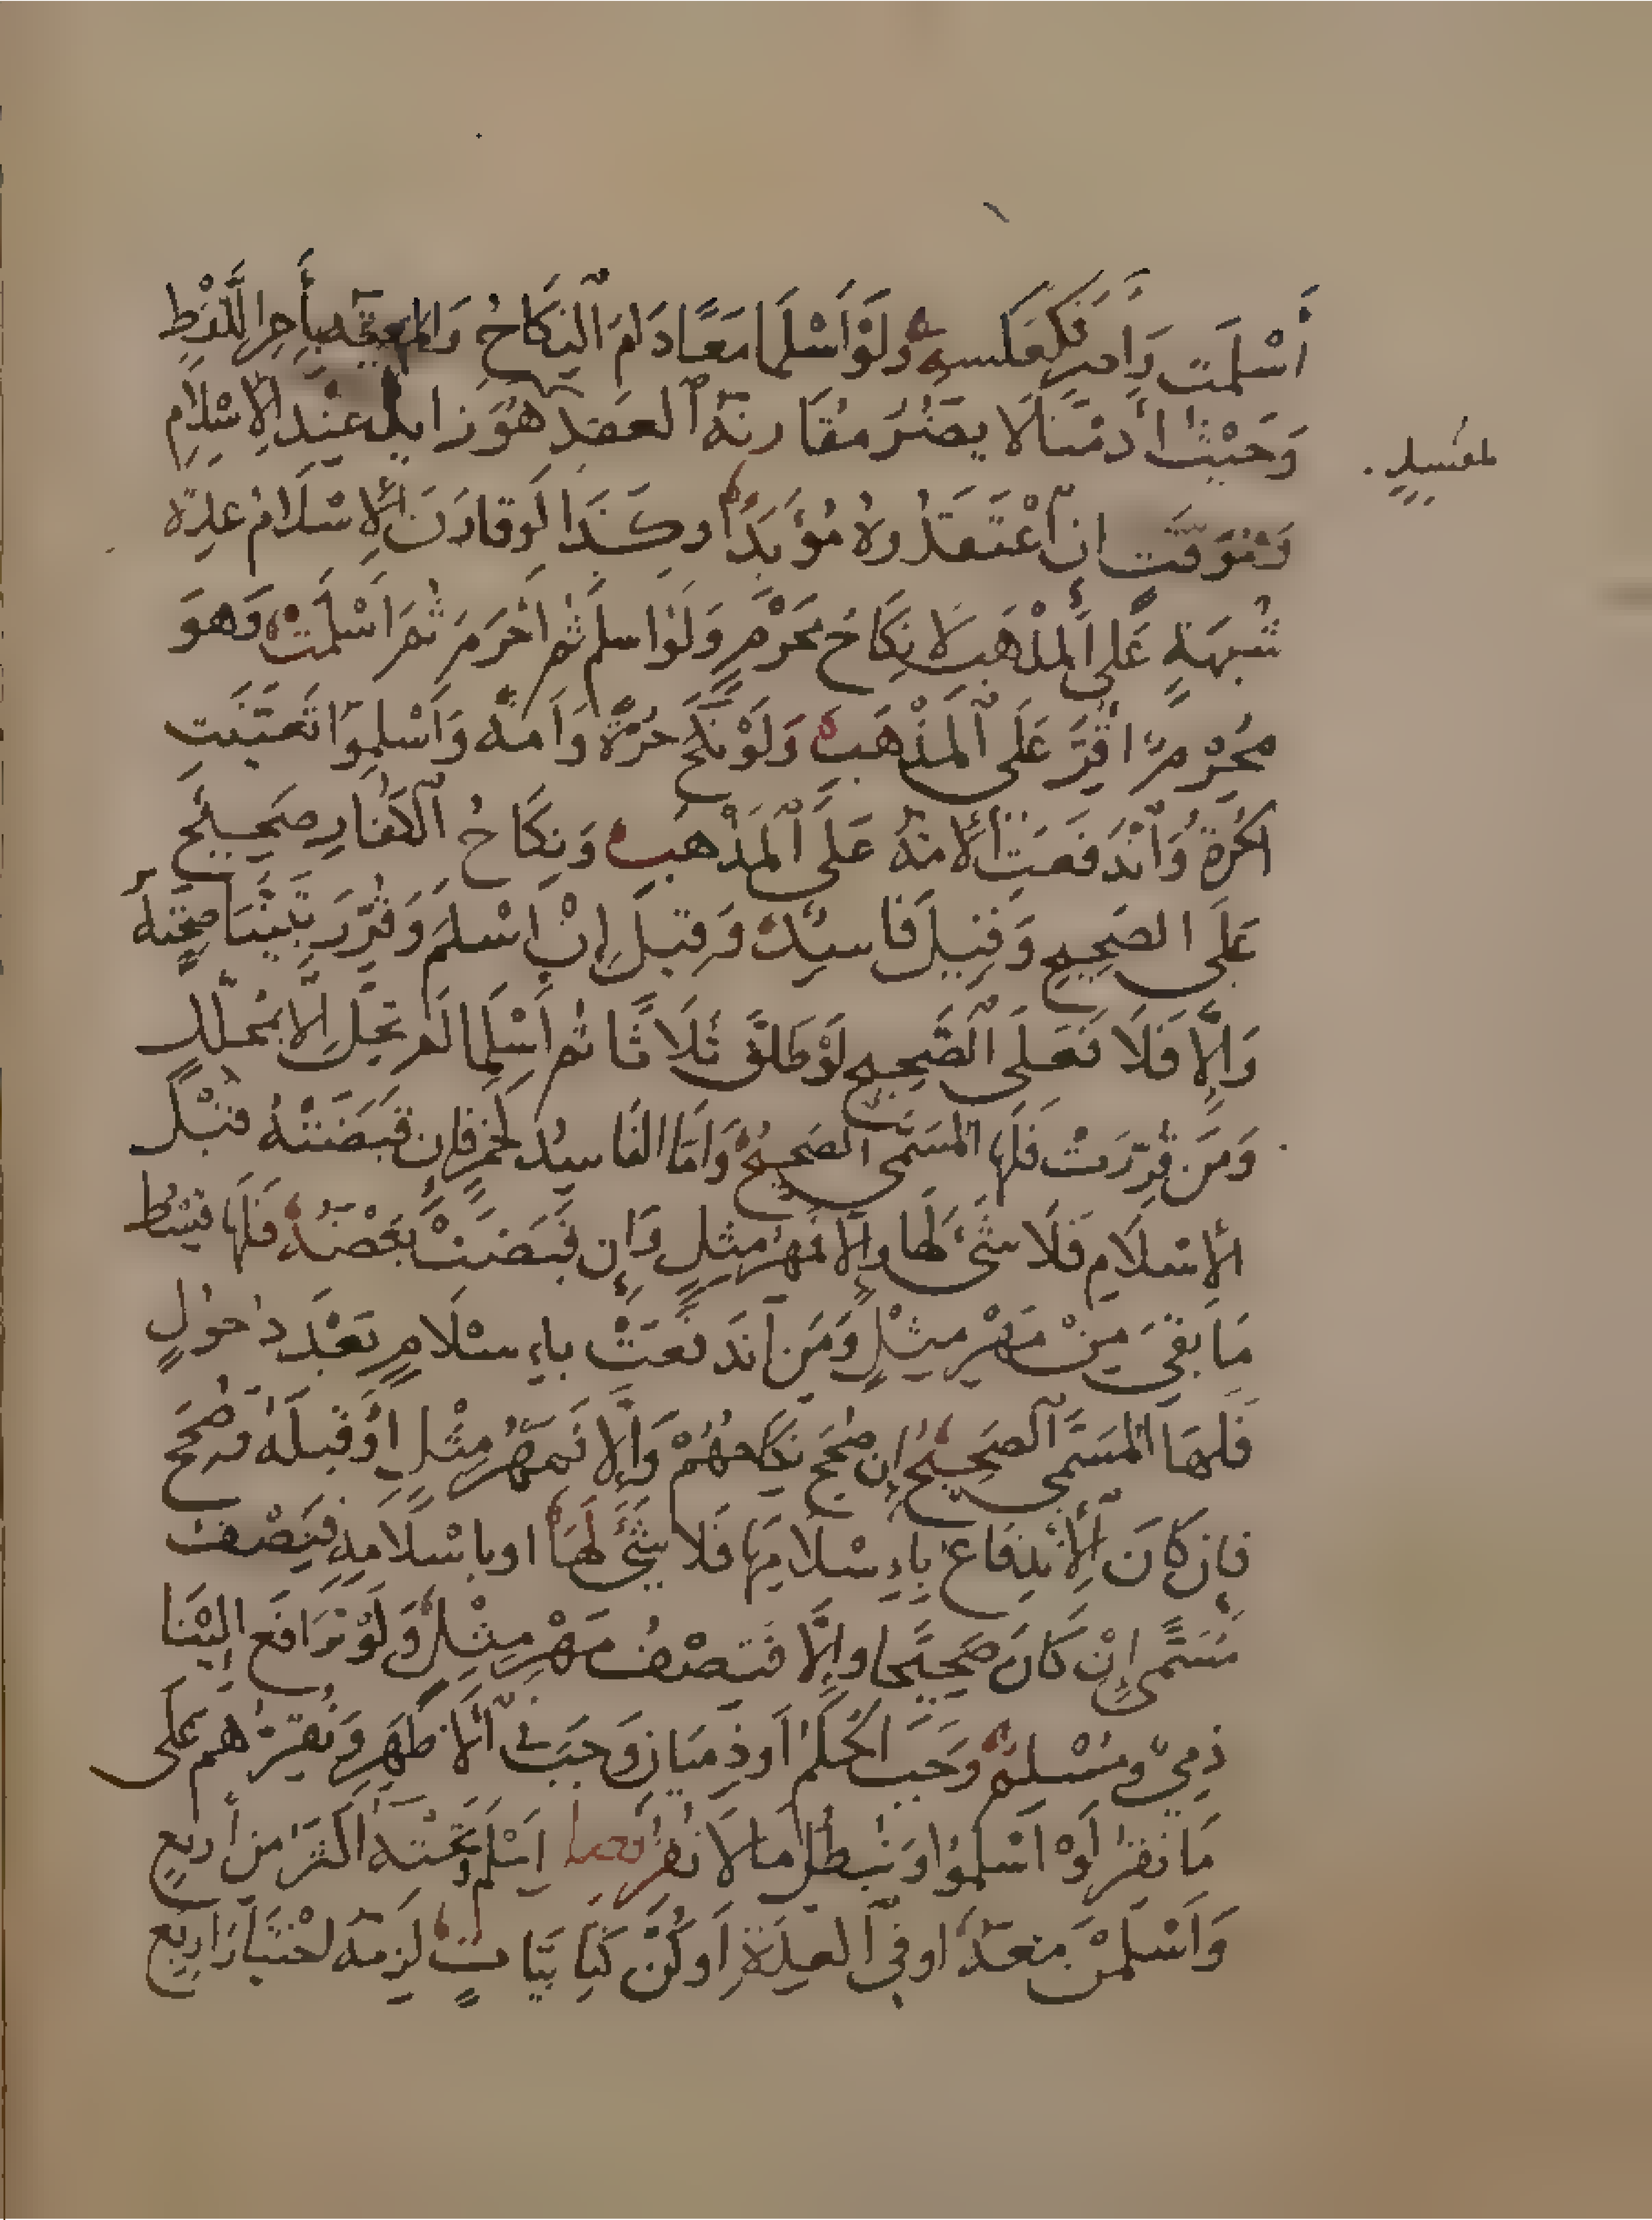 أَسْلَمَت وَأَصَرَّ فَكَعَكسِهِ وَلَوْ أَسْلَمَا مَعًا دَامَ النِّكَاحُ وَالمَعِيَّة بِأخِرِ اللَّفْظِ
وَحَيْثُ أَدَمْنَا لَا يَضُرُّ مُقَارنَةُ العَقدِ هُوَ زَايِلٌ عِنْدَ الإِسْلَامِ
وَمُوَقَّتٍ إِن اعْتَقَدُوهُ مُؤَبَّدًا وكَذَا لَو قَارَنَ الإِسْلَامُ عِدَّةَ
شُبهَةٍ عَلَى المَذْهَبِ لَا نِكَاحُ مَحْرَمٍ وَلَوْ اسلَمَ ثُمَّ أَحْرَمَ ثُمَّ اَسْلَمَتْ وَهوَ
مُحْرِمٌ اقِرَّ عَلَى المَذْهَبِ وَلَوْ نَكَحَ حُرَّةً وَاَمَةً وَاَسْلَمُوا تَعَيَّنَت
الحُرَّةُ وَانْدَفَعَتِ الأَمَةُ عَلَى المَذْهَبِ وَنِكَاحُ الكُفَّارِ صَحِيحٌ
عَلَى الصَحِيحِ وَقِيلَ فَاسِدٌ وَقِيلَ إِنْ اَسْلَمَ وَقُرِّرَ تَبَيَّنَّا صِحَّتَهُ
وَإِلَّا فَلَا فَعَلَى الصَّحِيحِ لَوْ طَلَّقَ ثَلَاثًا ثُمَّ اَسْلَمَا لَمْ تَحِلَّ إِلَّا بِمُحَلِّلٍ
وَمَن قُرِّرَتْ فَلَهَا المُسَمَّى الصَحِيحُ وَاَمَّا الفَاسِدُ لخَمْرٍ فَإِن قَبَضَتْهُ قَبْلَ
الإسْلَامِ فَلَا شَىْءَ لَهَا وَإِلَّا فَمَهْرُ مِثْلٍ وَإِن قَبَضَتْ بَعْضَهُ فَلَهَا قِسْطُ
مَا بَقِيَ مِنْ مَهْرِ مِثْلٍ وَمَن اَندَفَعَتْ بِاءِسْلَامٍ بَعْدَ دُخُولٍ
فَلَهَا المُسَمَّى الصَحِيحُ إِن صُحِّحَ نِكَاحُهُمْ وَإِلَّا فَمَهْرُ مِثْلٍ اَوْ قَبلَهُ وَصُحِّحَ
فَإِن كَانَ الإِنْدِفَاعُ بِاءِسْلَامِهَا فَلَا شَىْءَ لَهَا اَو بِاسْلَامِهِ فَنِصْفُ
مُسَمًّى إِنْ كَانَ صَحِيحًا وَإِلَّا فَنِصْفُ مَهْرِ مِثْلٍ وَلَوْ تَرَافَعَ إِلَيْنَا
ذِمِّيٌّ وَمُسْلِمٌ وَجَبَ الحُكمُ اَو ذِمِّيَانِ وَجَبَ فِي الأَظْهَرِ وَنُقِرُّهُم عَلَى
مَا نُقِرُّ لَوْ اَسْلَمُوا وَنُبْطِلُ مَا لَا نُقِرُّ فصل اَسْلَمَ وَتَحْتَهُ اَكْثَرُ مِن أَرْبَعٍ
وَاَسْلَمْنَ مَعَهُ اَو فِي العِدَّةِ اَو كُنَّ كِتَابِيَّاتٍ لَزِمَهُ اخْتِيَارُ اَرْبَعٍ